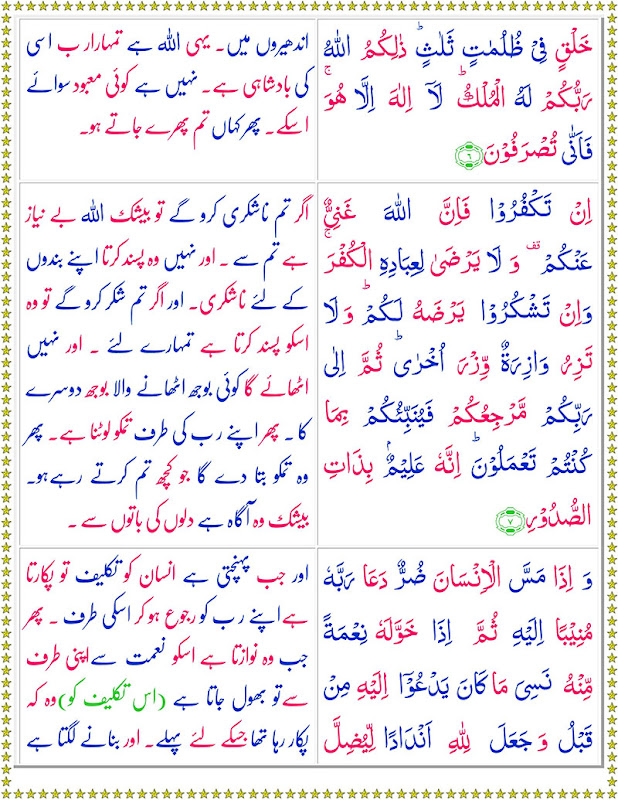 خَلْقٍ فِیْ ظُلُمٰتٍ ثَلٰثٍ ؕ ذٰلِکُمُ اللّٰهُ
رَبُّکُمْ لَهُ الْمُلْكُ ؕ لَاۤ اِلٰهَ اِلَّا هُوَ ۚ
فَاَنّٰی تُصْرَفُوْنَ ۶
اندھیروں میں۔ یہی اللہ ہے تمہارا رب اسی
کی بادشاہی ہے۔ نہیں ہے کوئی معبود سوائے
اسکے۔ پھر کہاں تم پھرے جاتے ہو۔
اِنْ تَکْفُرُوْا فَاِنَّ اللّٰهَ غَنِیٌّ
عَنْکُمْ ۟ وَ لَا یَرْضٰی لِعِبَادِهِ الْکُفْرَ ۚ
وَاِنْ تَشْکُرُوْا یَرْضَهُ لَکُمْ ؕ وَ لَا
تَزِرُ وَازِرَةٌ وِّزْرَ اُخْرٰی ؕ ثُمَّ اِلٰی
رَبِّکُمْ مَّرْجِعُکُمْ فَیُنَبِّئُکُمْ بِمَا
کُنْتُمْ تَعْمَلُوْنَ ؕ اِنَّهٗ عَلِیْمٌۢ بِذَاتِ
الصُّدُوْرِ ۷
اگر تم ناشکری کرو گے تو بیشک اللہ بے نیاز
ہے تم سے۔ اور نہیں وہ پسند کرتا اپنے بندوں
کے لئے ناشکری۔ اور اگر تم شکر کرو گے تو وہ
اسکو پسند کرتا ہے تمہارے لئے ۔ اور نہیں
اٹھائے گا کوئی بوجھ اٹھانے والا بوجھ دوسرے
کا ۔ پھر اپنے رب کی طرف تمکو لوٹنا ہے۔ پھر
وہ تمکو بتا دے گا جو کچھ تم کرتے رہے ہو۔
بیشک وہ آگاہ ہے دلوں کی باتوں سے ۔
وَ اِذَا مَسَّ الْاِنْسَانَ ضُرٌّ دَعَا رَبَّهٗ
مُنِیْبًا اِلَیْهِ ثُمَّ اِذَا خَوَّلَهٗ نِعْمَةً
مِّنْهُ نَسِیَ مَا کَانَ یَدْعُوْۤا اِلَیْهِ مِنْ
قَبْلُ وَ جَعَلَ لِلّٰهِ اَنْدَادًا لِّیُضِلَّ
اور جب پہنچتی ہے انسان کو تکلیف تو پکارتا
ہے اپنے رب کو رجوع ہو کر اسکی طرف ۔ پھر
جب وہ نوازتا ہے اسکو نعمت سے اپنی طرف
سے تو بھول جاتا ہے (اس تکلیف کو) وہ کہ
پکار رہا تھا جسکے لئے پہلے۔ اور بنانے لگتا ہے